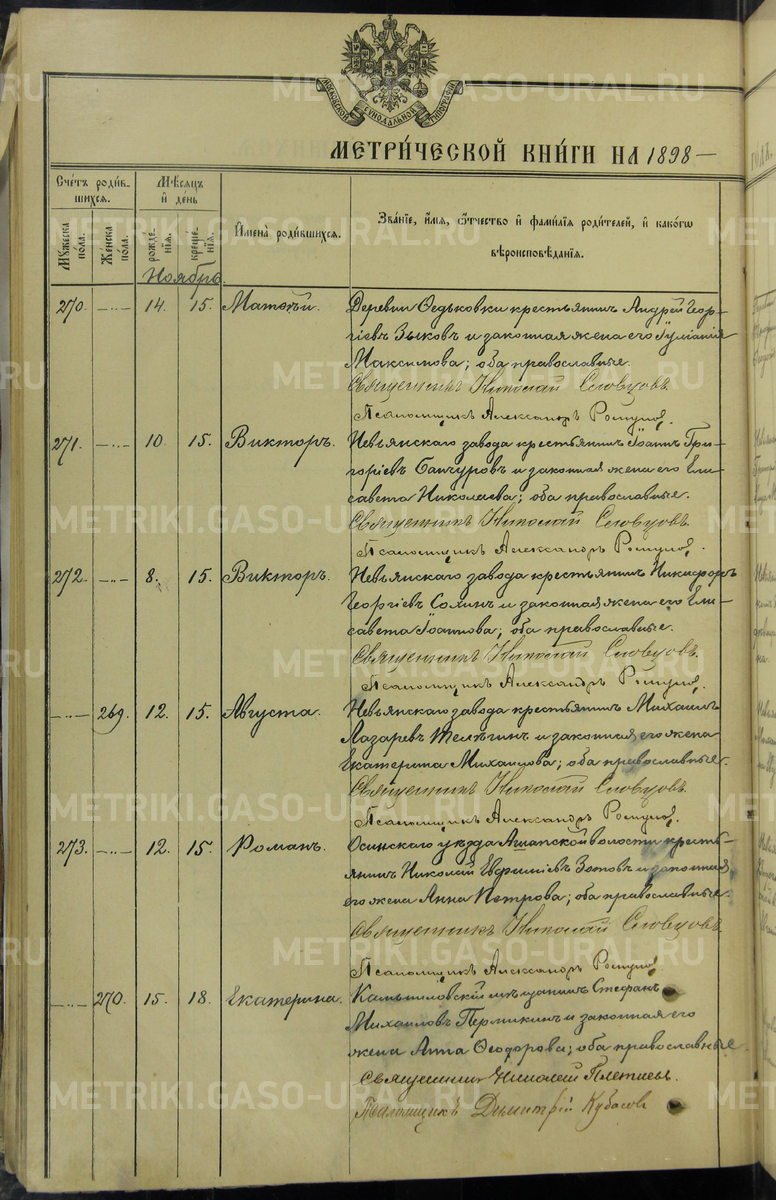 МОСКОВСКОЙ СУНОДАЛЬНОЙ ТИПОГРАФІИ
МЕТРИ́ЧЕСКОЙ КНИ́ГИ НА 1898 —
Счётъ роди́вшихся.
Мѣ́сяцъ и҆ де́нь
Мꙋ́жеска по́ла.
Же́нска по́ла.
рожде́нїѧ.
креще́нїѧ.
И҆мена̀ роди́вшихся.
Зва́нїе, и҆́мѧ, ѻ҆́тчество и҆ фами́лїѧ роди́телей, и҆ како́гѡ
вѣроисповѣ́данїѧ.
Ноябрь.
270. —"— 14. 15. Матѳѣй. Деревни Ѳедьковки крестьянинъ Андрей Геор-
гіевъ Зыковъ и законная жена его Іуліанія
Максимова; оба православные.
Священникъ Николай Словцовъ.
Псаломщикъ Александръ
271. —"— 10. 15. Викторъ. Невьянскаго завода крестьянинъ Іоаннъ Гри-
горіевъ и законная жена его Ели-
савета Николаева; оба православные.
Священникъ Николай Словцовъ.
Псаломщикъ Александръ
272. —"— 8. 15. Викторъ. Невьянскаго завода крестьянинъ Никифоръ
Георгіевъ и законная жена его Ели-
савета Іоаннова; оба православные.
Священникъ Николай Словцовъ.
Псаломщикъ Александръ
—"— 269. 12. 15. Августа. Невьянскаго завода крестьянинъ Михаилъ
Лазаревъ Телѣгинъ и законная его жена
Екатерина Михаилова; оба православные.
Священникъ Николай Словцовъ.
Псаломщикъ Александръ
273. —"— 12. 15. Романъ. Осинскаго уѣзда Ашапской волости кресть-
янинъ Николай Евфиміевъ Зотовъ и законная
его жена Анна Петрова; оба православные.
Священникъ Николай Словцовъ.
Псаломщикъ Александръ
—"— 270. 15. 18. Екатерина. Камышловскій мѣщанинъ Стефанъ
Михаиловъ Пермикинъ и законная его
жена Анна Ѳеодорова; оба православные.
Священникъ Николай Плетневъ.
Псаломщикъ Димитрій Кубасовъ
METRIKI.GASO-URAL.RU